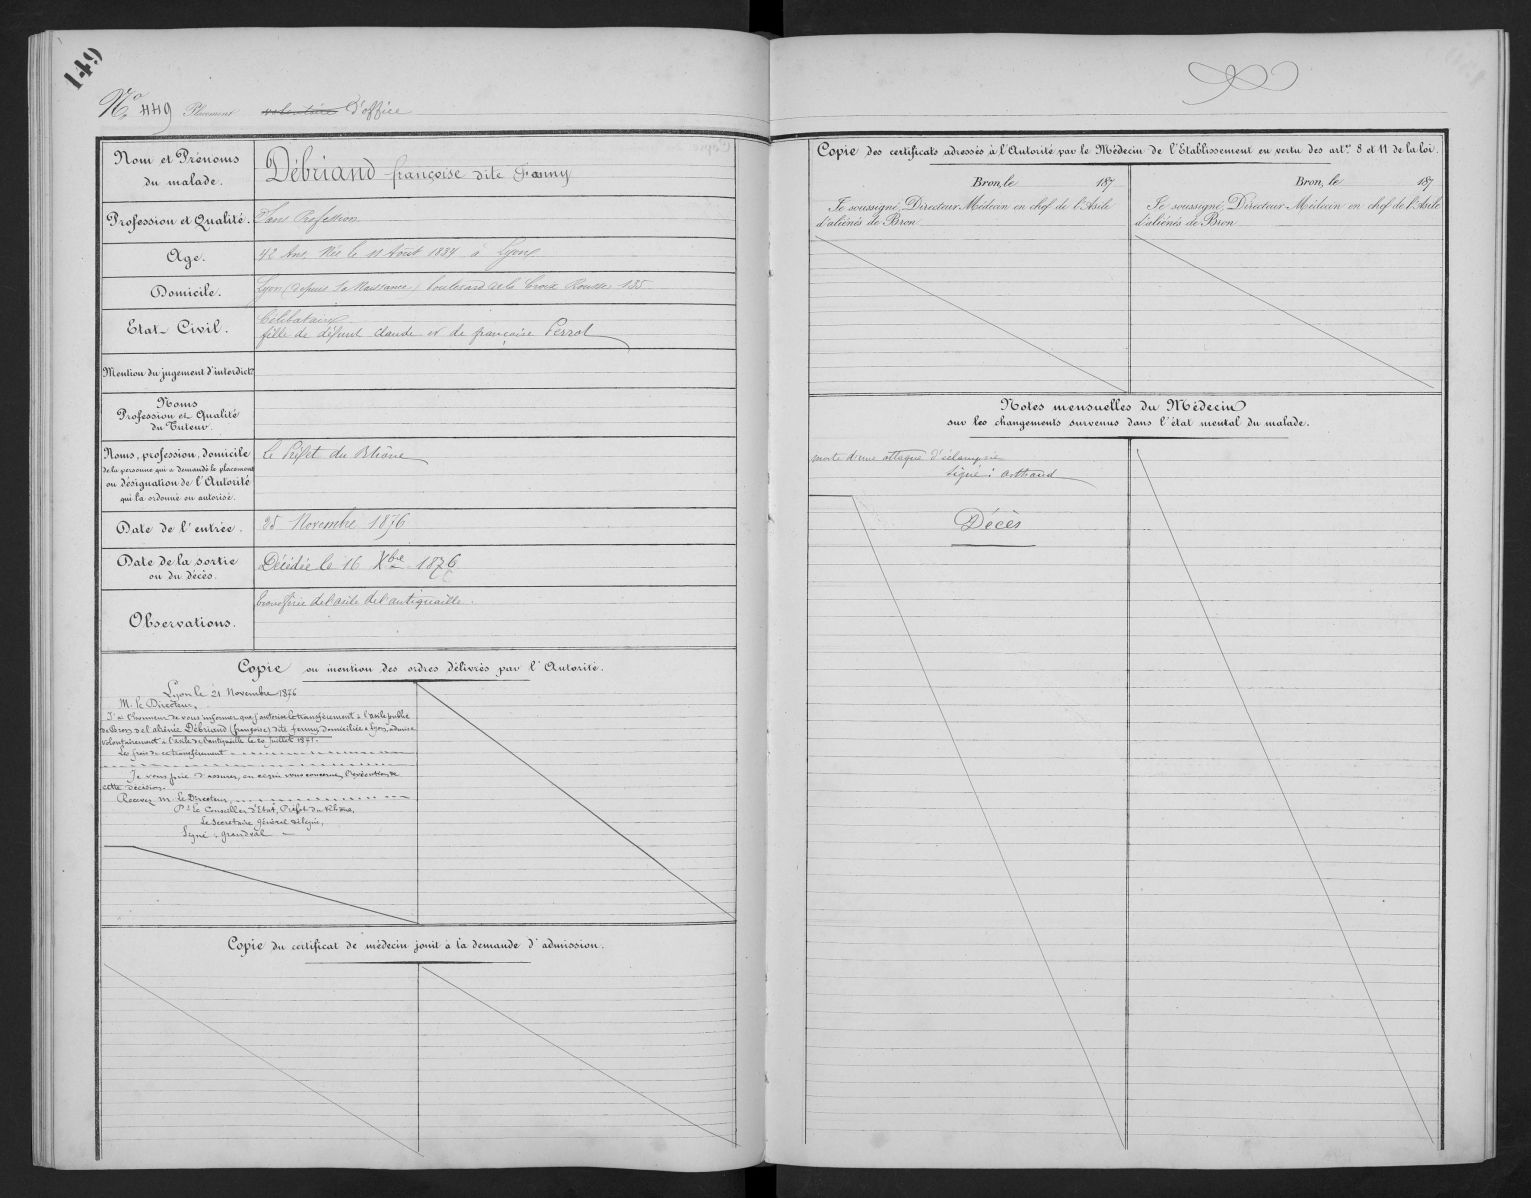 149
No 449 Placement volontaire D'office
Nom et Prénoms
du malade.
Débriand françoise dite Fanny
Profession et Qualité.
Sans Profession
Age.
42 Ans, Née le 11 Août 1834 à Lyon
Domicile.
Lyon (depuis sa Naissance) boulevard de la Croix Rousse 135
Etat Civil.
Célibataire
fille de défunt Claude et de françoise Perrot
Mention du jugement d'interdict.
Noms
Profession et Qualité
du Tuteur.
Noms, profession, domicile
de la personne qui a demandé le placement
ou désignation de l'Autorité
qui l'a ordonné ou autorisé.
le Préfet du Rhône
Date de l'entrée.
25 Novembre 1876
Date de la sortie
ou du décès.
Décédée le 16 Xbre 1876
Observations.
transférée de l'asile de l'antiquaille.
Copie ou mention des ordres délivrés par l'Autorité.
Lyon le 21 Novembre 1876
M. le Directeur,
J'ai l'honneur de vous informer que j'autorise le transfèrement à l'asile public
de Bron de l'aliénée Débriand (françoise) dite fanny, domiciliée à Lyon, admise
volontairement à l'asile de l'antiquaille le 20 Juillet 1871.
Les frais de ce transfèrement
Je vous prie d'assurer, en ce qui vous concerne, l'exécution de
cette décision.
Recevez M. le Directeur,
Pr le Conseiller d'Etat, Préfet du Rhône,
Le Secrétaire général délégué,
Signé : grandval
Copie du certificat de médecin joint à la demande d'admission.
Copie des certificats adressés à l'Autorité par le Médecin de l'Etablissement en vertu des artes 8 et 11 de la loi.
Bron, le 187
Je soussigné, Directeur-Médecin en chef de l'Asile
d'aliénés de Bron
Bron, le 187
Je soussigné, Directeur-Médecin en chef de l'Asile
d'aliénés de Bron
Notes mensuelles du Médecin
sur les changements survenus dans l'état mental du malade.
morte d'une attaque d'éclampsie
Signé : Arthaud
Décès